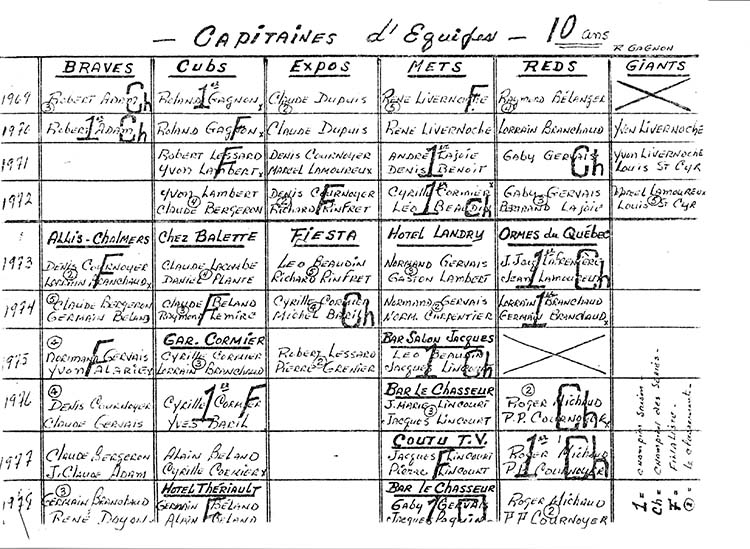 - CAPITAINES d'EQUIPES - 10 ans
R GAGNON
BRAVES CUBS EXPOS METS REDS GIANTS
1969 ③ ROBERT ADAM Ch ROLAND GAGNON 1 CLAUDE DUPUIS ② RENE LIVERNOCHE F RAYMOND BÉLANGER
1970 ROBERT ADAM 1 Ch ROLAND GAGNON F CLAUDE DUPUIS RENE LIVERNOCHE LORRAIN BRANCHAUD YVON LIVERNOCHE
1971 ROBERT LESSARD DENIS COURNOYER ANDRÉ LAJOIE GABY GERVAIS Ch YVON LIVERNOCHE
YVON LAMBERT F MARCEL LAMOUREUX DENIS BENOIT 1 LOUIS ST CYR
1972 YVON LAMBERT DENIS COURNOYER F CYRILLE CORMIER 1 GABY GERVAIS MARCEL LAMOUREUX
CLAUDE BERGERON ④ RICHARD RINFRET ② LEO BEAUDIN Ch BERTRAND LAJOIE ③ LOUIS ST CYR ⑤
ALLIS-CHALMERS CHEZ BALETTE FIESTA HOTEL LANDRY ORMES DU QUÉBEC
1973 DENIS COURNOYER F CLAUDE LACOMBE LEO BEAUDIN NORMAND GERVAIS 1 Ch
LORRAIN BRANCHAUD DANIEL PLANTE RICHARD RINFRET GASTON LAMBERT JEAN LAMOUREUX
1974 CLAUDE BERGERON CLAUDE BELAND F CYRILLE CORMIER Ch NORMAND GERVAIS LORRAIN BRANCHAUD 1
GERMAIN BELAND RAYMOND LEMIRE MICHEL BARIL NORM. CARPENTIER GERMAIN BRANCHAUD
GAR. CORMIER BAR SALON JACQUES
1975 ④ NORMAND GERVAIS F CYRILLE CORMIER ROBERT LESSARD LEO BEAUDIN 1 Ch
YVON ALARIE LORRAIN BRANCHAUD ③ PIERRE GRENIER ② JACQUES LINCOURT
BAR LE CHASSEUR
1976 ④ DENIS COURNOYER CYRILLE CORMIER 1 F J. MARIE LINCOURT ③ ROGER MICHAUD ② Ch
CLAUDE GERVAIS YVES BARIL JACQUES LINCOURT P.P. COURNOYER
COUTU T.V.
1977 CLAUDE BERGERON ALAIN BELAND JACQUES LINCOURT F ROGER MICHAUD 1 Ch
J. CLAUDE ADAM CYRILLE CORMIER PIERRE LINCOURT P.P. COURNOYER
HOTEL THÉRIAULT BAR LE CHASSEUR
③ GERMAIN BRANCHAUD GERMAIN BÉLAND F GABY GERVAIS 1 ROGER MICHAUD
RENÉ DOYON ALAIN BELAND JACQUES PAQUIN P.P. COURNOYER ②
1 = champion saison -
Ch = champion des séries -
F = Finaliste -
④ = le classement -